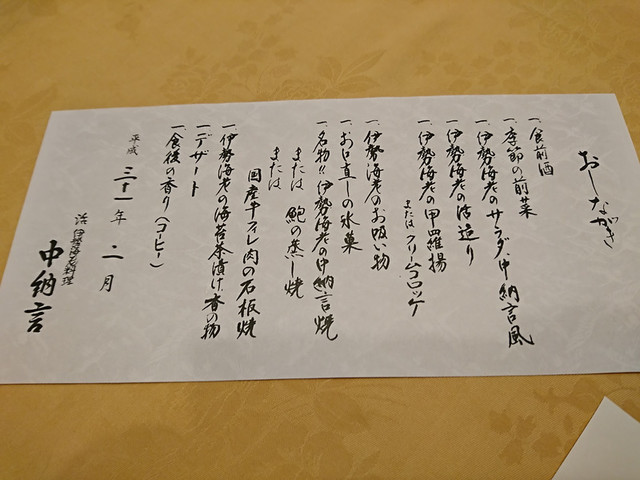 おしながき
一、食前酒
一、季節の前菜
一、伊勢海老のサラダ 中納言風
一、伊勢海老の活造り
一、伊勢海老の甲羅揚
または クリームコロッケ
一、伊勢海老のお吸い物
一、お口直しの氷菓
一、名物!!伊勢海老の中納言焼
または 鮑の蒸し焼
または 国産牛フィレ肉の石板焼
一、伊勢海老の海苔茶漬け 香の物
一、デザート
一、食後の香り(コーヒー)
平成 三十一年 二月
活 伊勢海老料理
中納言